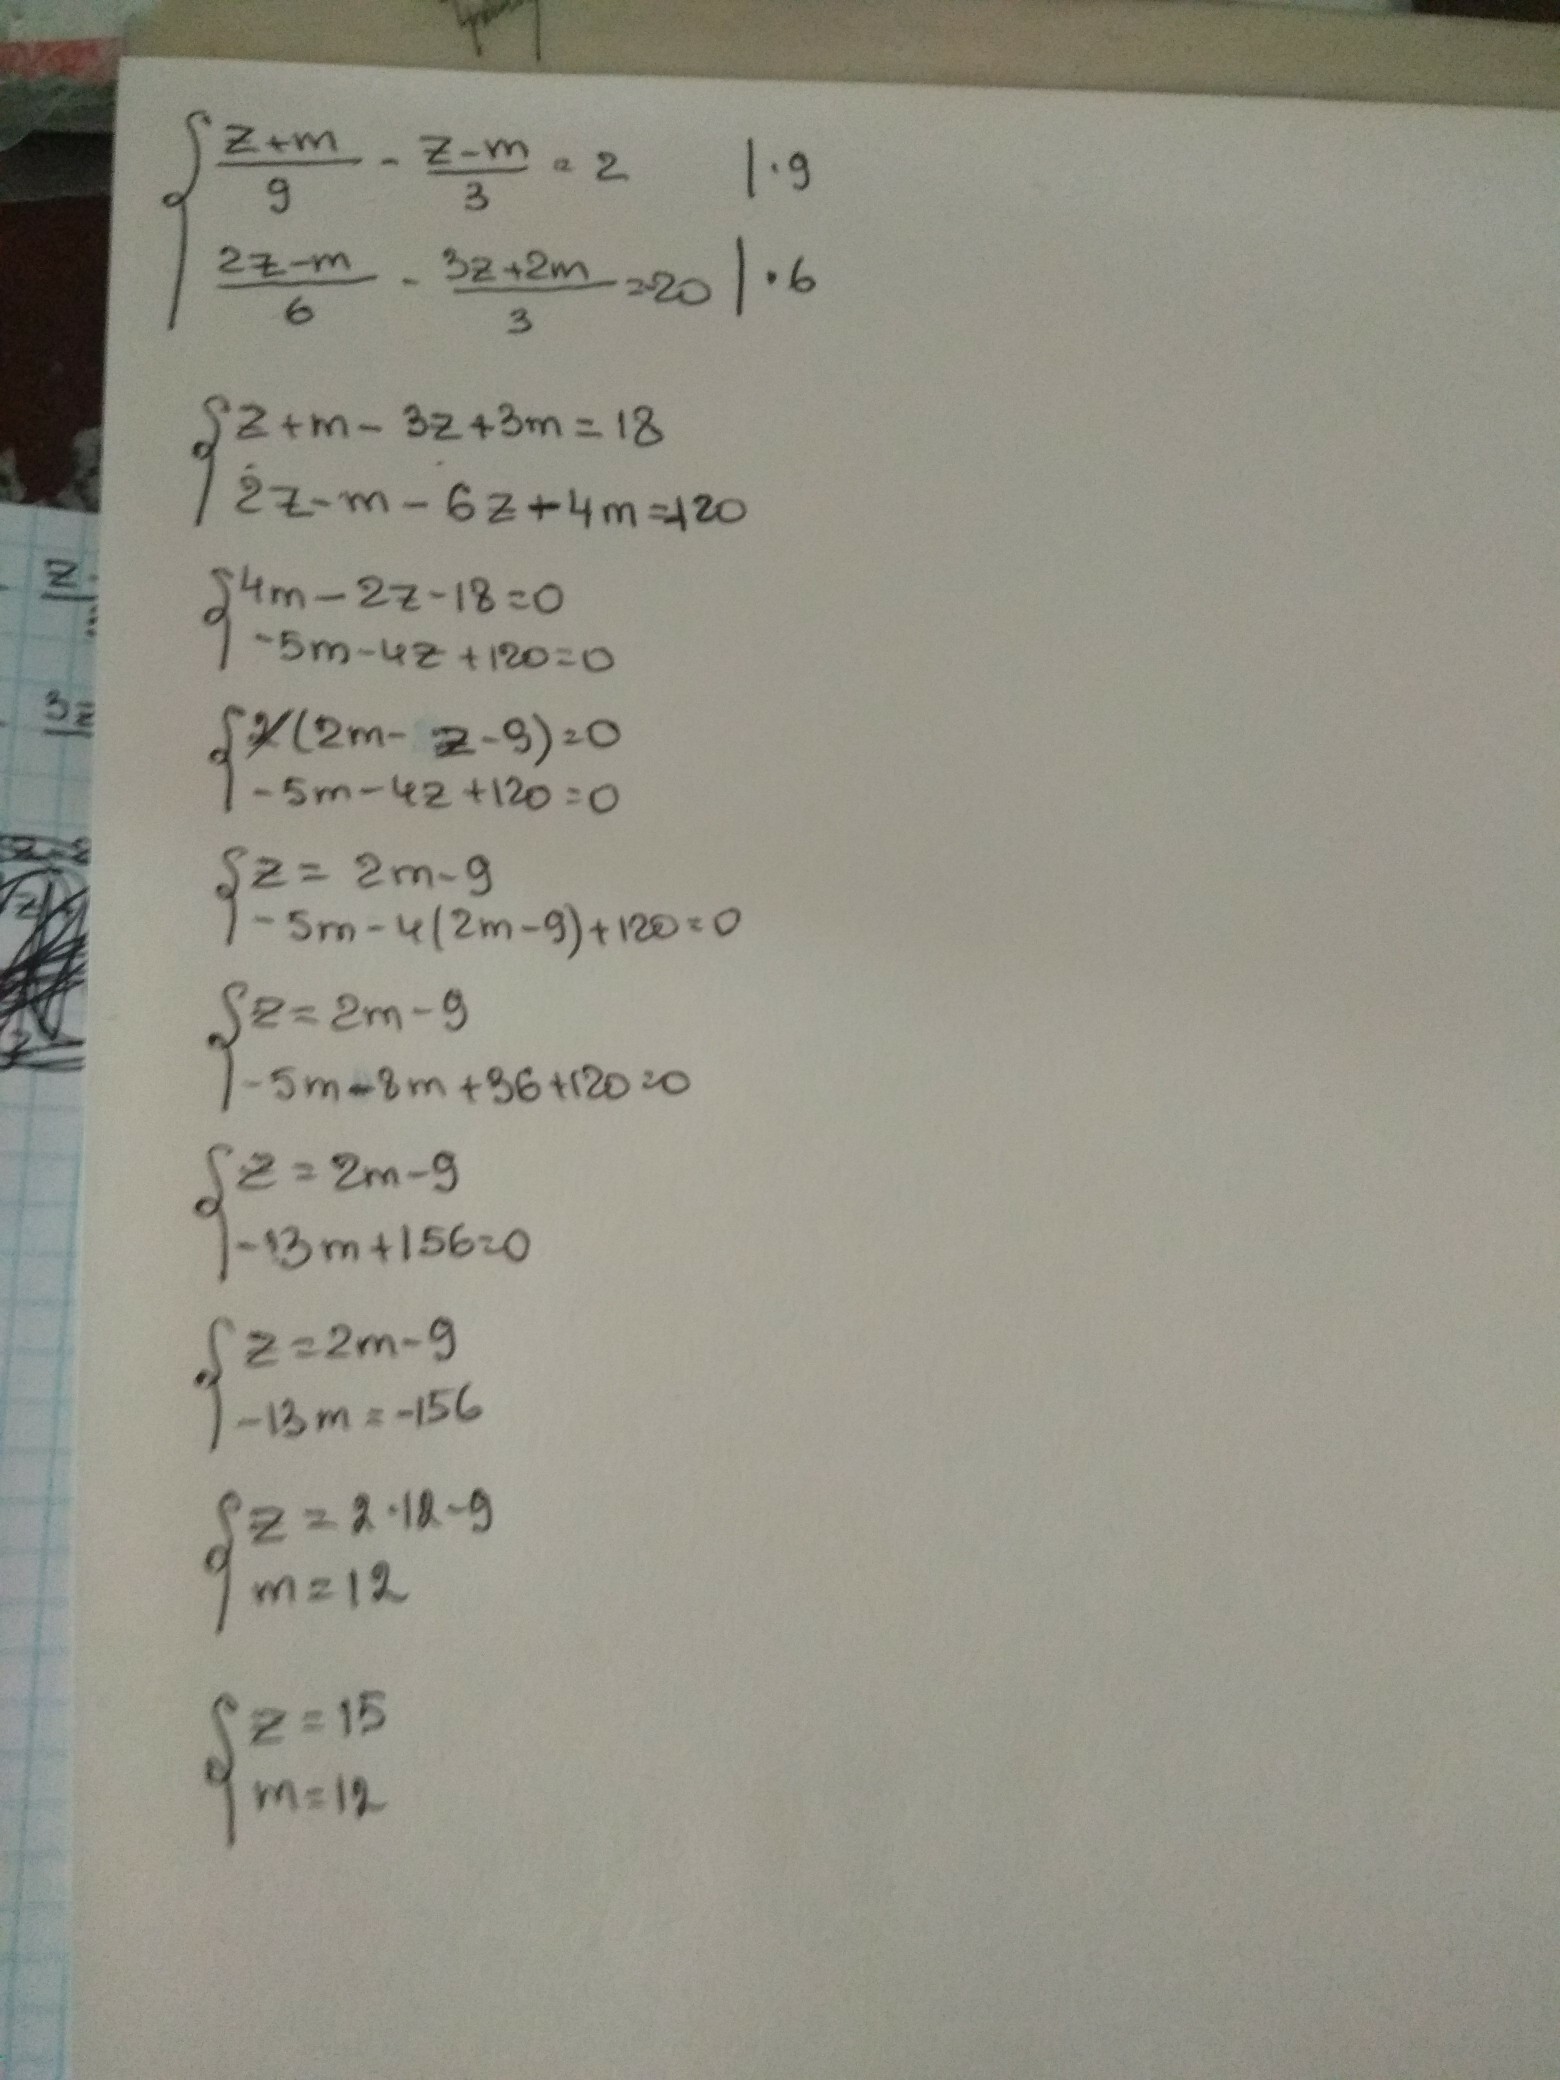 { (z+m)/9 - (z-m)/3 = 2 | ·9
(2z-m)/6 - (3z+2m)/3 = -20 | ·6
{ z+m - 3z+3m = 18
2z-m - 6z - 4m = -120
{ 4m - 2z - 18 = 0
-5m - 4z + 120 = 0
{ 2(2m - z - 9) = 0
-5m - 4z + 120 = 0
{ z = 2m - 9
-5m - 4(2m-9) + 120 = 0
{ z = 2m - 9
-5m - 8m + 36 + 120 = 0
{ z = 2m - 9
-13m + 156 = 0
{ z = 2m - 9
-13m = -156
{ z = 2·12 - 9
m = 12
{ z = 15
m = 12